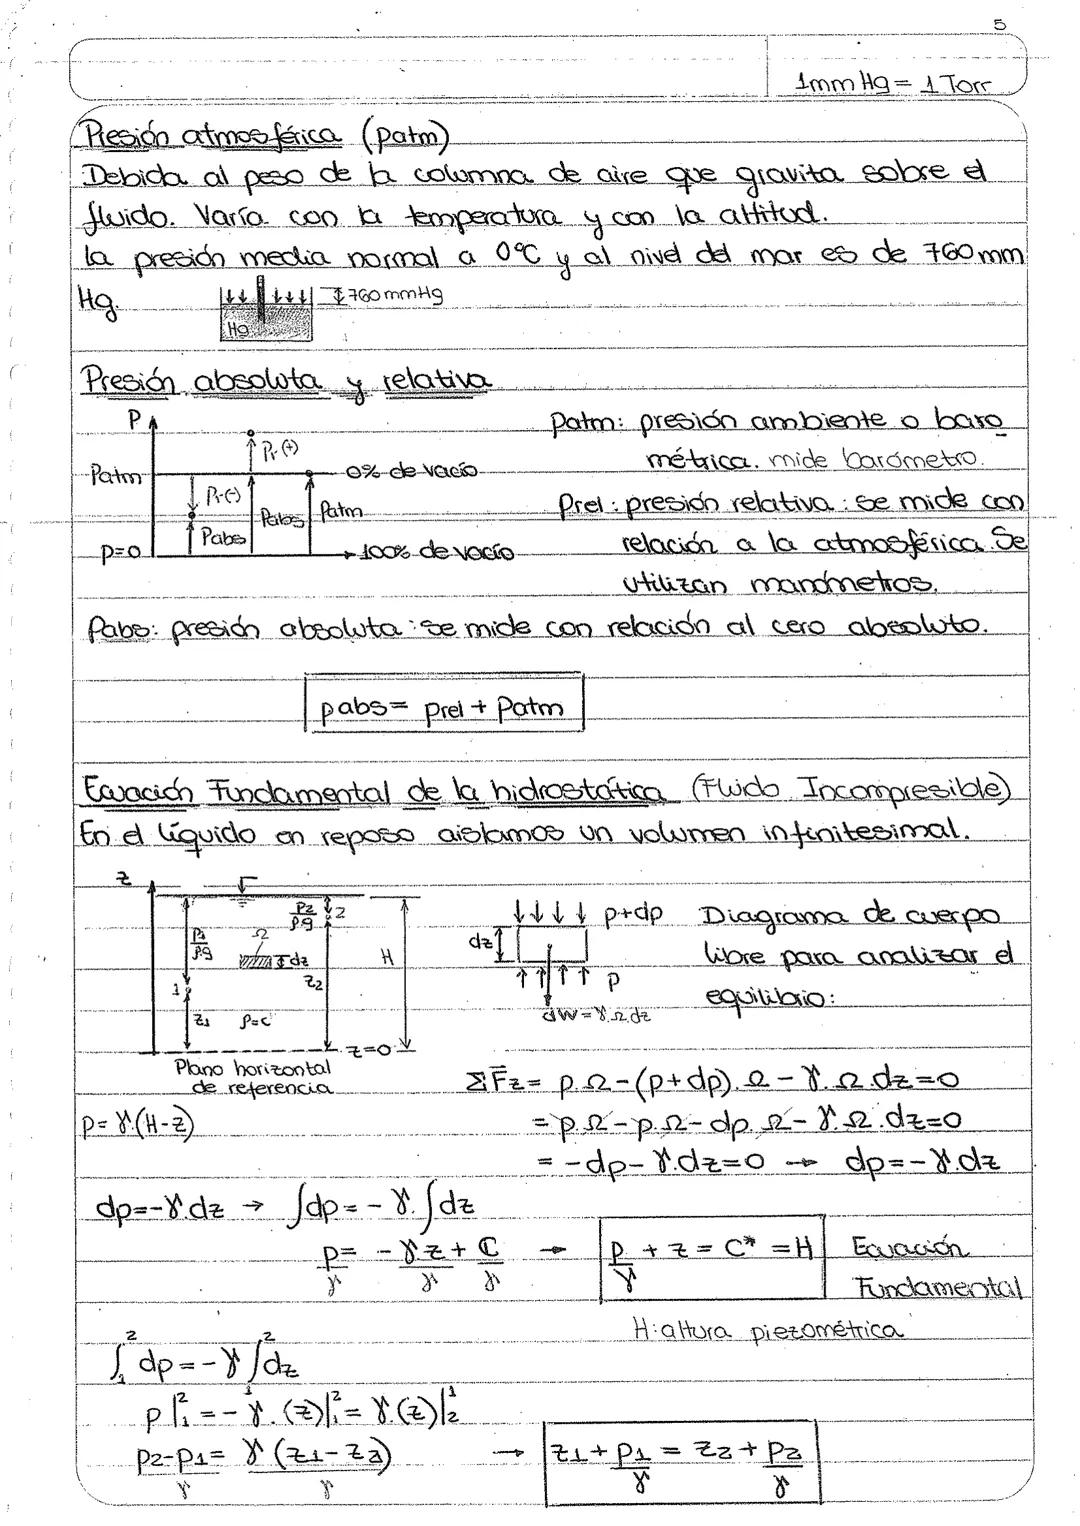 5
1mm Hg = 1 Torr
Presión atmosférica (patm)
Debida al peso de la columna de aire que gravita sobre el
fluido. Varía con la temperatura y con la altitud.
La presión media normal a 0°C y al nivel del mar es de 760 mm
Hg.
760 mmHg
Hg
Presión absoluta y relativa
P
Patm
p=0
Pr(+)
Pr(-)
Pabs
Pabs
Patm
0% de vacío
100% de vacío
Patm: presión ambiente o baro
métrica. mide barómetro.
Prel: presión relativa: se mide con
relación a la atmosférica. Se
utilizan manómetros.
Pabs: presión absoluta: se mide con relación al cero absoluto.
pabs = prel + Patm
Ecuación Fundamental de la hidrostática (Fluido Incompresible)
En el líquido en reposo aislamos un volumen infinitesimal.
z
P1/ρg
P2/ρg
2
Ω
dz
H
z2
1
z1
ρ=c
z=0
Plano horizontal
de referencia
p+dp
dz
p
dW=γ.Ω.dz
Diagrama de cuerpo
libre para analizar el
equilibrio:
p=γ.(H-z)
ΣF̄z = p.Ω-(p+dp).Ω-γ.Ω.dz=0
= p.Ω-p.Ω-dp.Ω-γ.Ω.dz=0
= -dp-γ.dz=0 → dp=-γ.dz
dp=-γ.dz → ∫dp = -γ.∫dz
p/γ = -γ.z/γ + C/γ → p/γ + z = C* = H Ecuación
Fundamental
H: altura piezométrica
∫₁² dp = -γ ∫₁² dz
p|₁² = -γ.(z)|₁² = γ.(z)|₂¹
p2-p1/γ = γ(z1-z2)/γ → z1 + p1/γ = z2 + p2/γ